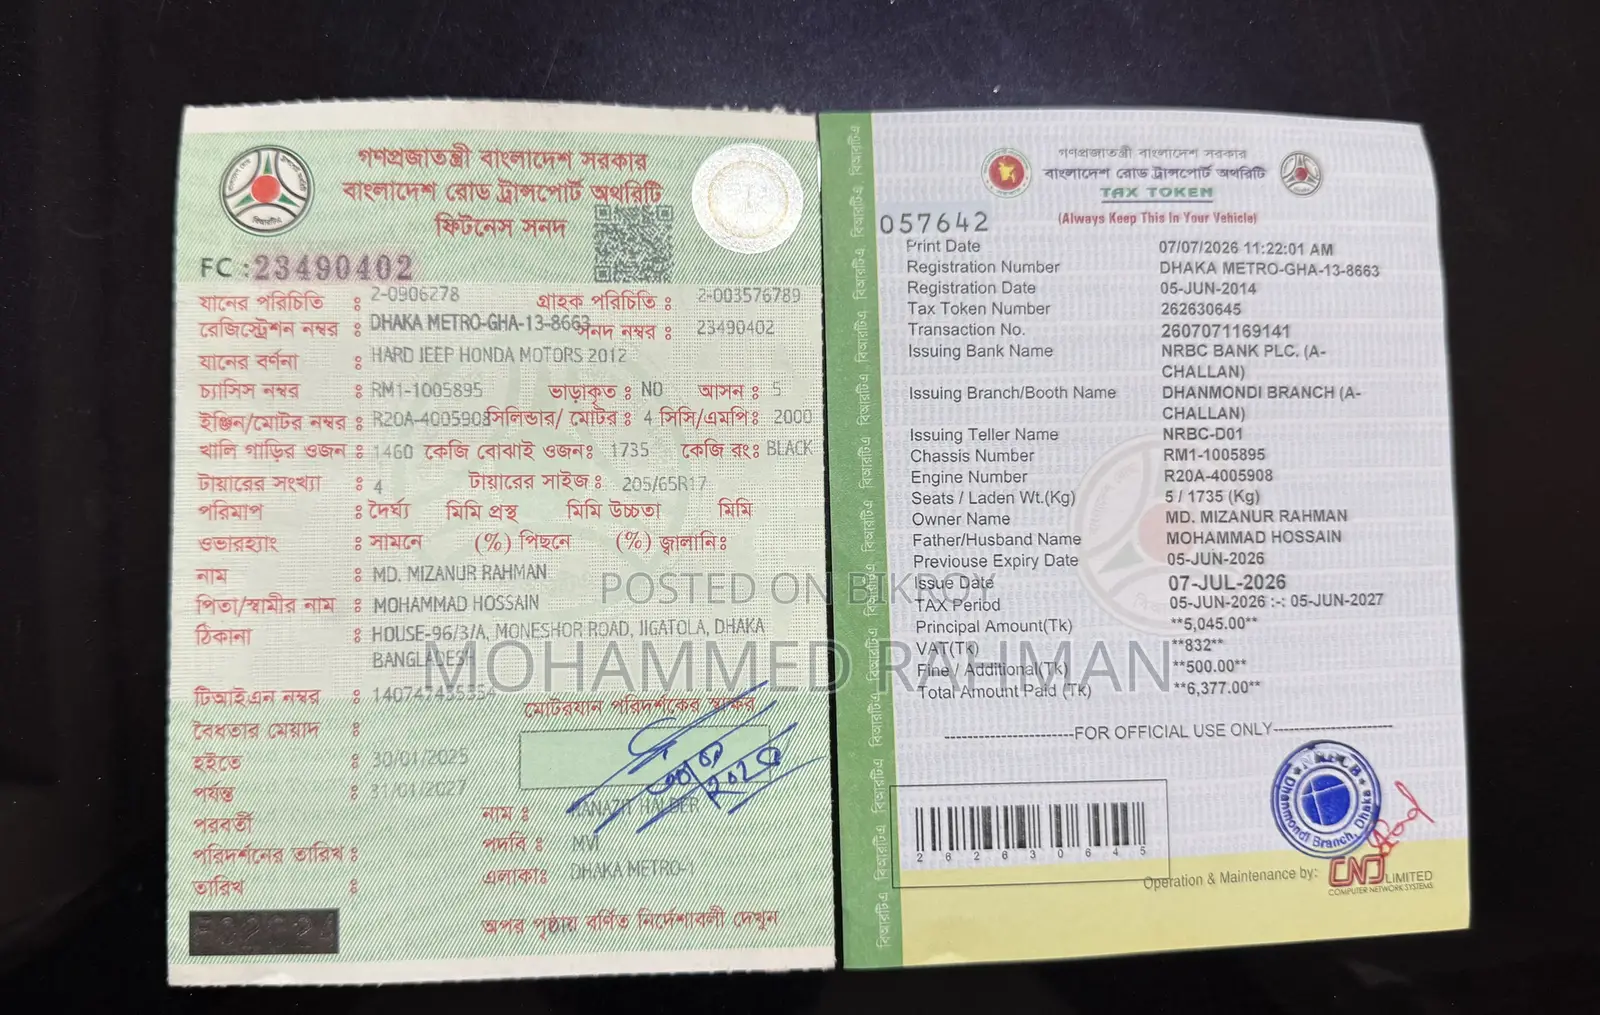 গণপ্রজাতন্ত্রী বাংলাদেশ সরকার
বাংলাদেশ রোড ট্রান্সপোর্ট অথরিটি
ফিটনেস সনদ
বিআরটিএ
FC : 23490402
যানের পরিচিতি : 2-0906278 গ্রাহক পরিচিতি : 2-003576789
রেজিস্ট্রেশন নম্বর : DHAKA METRO-GHA-13-8663 সনদ নম্বর : 23490402
যানের বর্ণনা : HARD JEEP HONDA MOTORS 2012
চ্যাসিস নম্বর : RM1-1005895 ভাড়াকৃত : NO আসন : 5
ইঞ্জিন/মোটর নম্বর : R20A-4005908 সিলিন্ডার/ মোটর : 4 সিসি/এমপি: 2000
খালি গাড়ির ওজন : 1460 কেজি বোঝাই ওজন: 1735 কেজি রং: BLACK
টায়ারের সংখ্যা : 4 টায়ারের সাইজ : 205/65R17
পরিমাপ : দৈর্ঘ্য মিমি প্রস্থ মিমি উচ্চতা মিমি
ওভারহ্যাং : সামনে (%) পিছনে (%) জ্বালানি:
নাম : MD. MIZANUR RAHMAN
পিতা/স্বামীর নাম : MOHAMMAD HOSSAIN
ঠিকানা : HOUSE-96/3/A, MONESHOR ROAD, JIGATOLA, DHAKA
BANGLADESH
টিআইএন নম্বর : 140747435354
মোটরযান পরিদর্শকের স্বাক্ষর
বৈধতার মেয়াদ :
হইতে : 30/01/2025
পর্যন্ত : 31/01/2027
পরবর্তী
পরিদর্শনের তারিখ :
তারিখ :
নাম : RANAJIT HALDER
পদবি : MVI
এলাকা: DHAKA METRO-1
অপর পৃষ্ঠায় বর্ণিত নির্দেশাবলী দেখুন
বিআরটিএ বিআরটিএ বিআরটিএ বিআরটিএ বিআরটিএ বিআরটিএ বিআরটিএ
গণপ্রজাতন্ত্রী বাংলাদেশ সরকার
বাংলাদেশ রোড ট্রান্সপোর্ট অথরিটি
TAX TOKEN
(Always Keep This In Your Vehicle)
057642
Print Date 07/07/2026 11:22:01 AM
Registration Number DHAKA METRO-GHA-13-8663
Registration Date 05-JUN-2014
Tax Token Number 262630645
Transaction No. 2607071169141
Issuing Bank Name NRBC BANK PLC. (A-
CHALLAN)
Issuing Branch/Booth Name DHANMONDI BRANCH (A-
CHALLAN)
Issuing Teller Name NRBC-D01
Chassis Number RM1-1005895
Engine Number R20A-4005908
Seats / Laden Wt.(Kg) 5 / 1735 (Kg)
Owner Name MD. MIZANUR RAHMAN
Father/Husband Name MOHAMMAD HOSSAIN
Previouse Expiry Date 05-JUN-2026
Issue Date 07-JUL-2026
TAX Period 05-JUN-2026 :-: 05-JUN-2027
Principal Amount(Tk) **5,045.00**
VAT(Tk) **832**
Fine / Additional(Tk) **500.00**
Total Amount Paid (Tk) **6,377.00**
FOR OFFICIAL USE ONLY
262630645
Dhanmondi Branch, Dhaka
Operation & Maintenance by: CNS LIMITED
COMPUTER NETWORK SYSTEMS
POSTED ON BIKROY
MOHAMMED RAHMAN